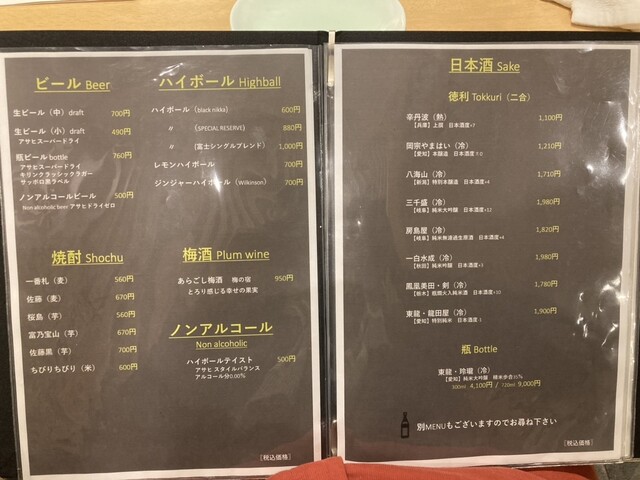 ビール Beer
生ビール（中）draft 700円
生ビール（小）draft 490円
アサヒスーパードライ
瓶ビール bottle 760円
アサヒスーパードライ
キリンクラッシックラガー
サッポロ黒ラベル
ノンアルコールビール 500円
Non alcoholic beer アサヒドライゼロ
焼酎 Shochu
一番札（麦） 560円
佐藤（麦） 670円
桜島（芋） 560円
富乃宝山（芋） 670円
佐藤黒（芋） 700円
ちびりちびり（米） 600円
ハイボール Highball
ハイボール（black nikka） 600円
〃 （SPECIAL RESERVE） 880円
〃 （富士シングルブレンド） 1,000円
レモンハイボール 700円
ジンジャーハイボール（Wilkinson） 700円
梅酒 Plum wine
あらごし梅酒 梅の宿 950円
とろり感じる幸せの果実
ノンアルコール
Non alcoholic
ハイボールテイスト 500円
アサヒ スタイルバランス
アルコール分0.00%
［税込価格］
日本酒 Sake
徳利 Tokkuri（二合）
辛丹波（熱） 1,100円
【兵庫】上撰 日本酒度+7
岡宗やまはい（冷） 1,210円
【愛知】本醸造 日本酒度
八海山（冷） 1,710円
【新潟】特別本醸造 日本酒度+4
三千盛（冷） 1,980円
【岐阜】純米大吟醸 日本酒度+12
房島屋（冷） 1,820円
【岐阜】純米無濾過生原酒 日本酒度+4
一白水成（冷） 1,980円
【秋田】純米吟醸 日本酒度+3
鳳凰美田・剣（冷） 1,780円
【栃木】瓶燗火入純米酒 日本酒度+10
東龍・龍田屋（冷） 1,900円
【愛知】特別純米 日本酒度
瓶 Bottle
東龍・玲瓏（冷）
【愛知】純米大吟醸 精米歩合35%
300ml 4,100円 / 720ml 9,000円
別MENUもございますのでお尋ね下さい
［税込価格］